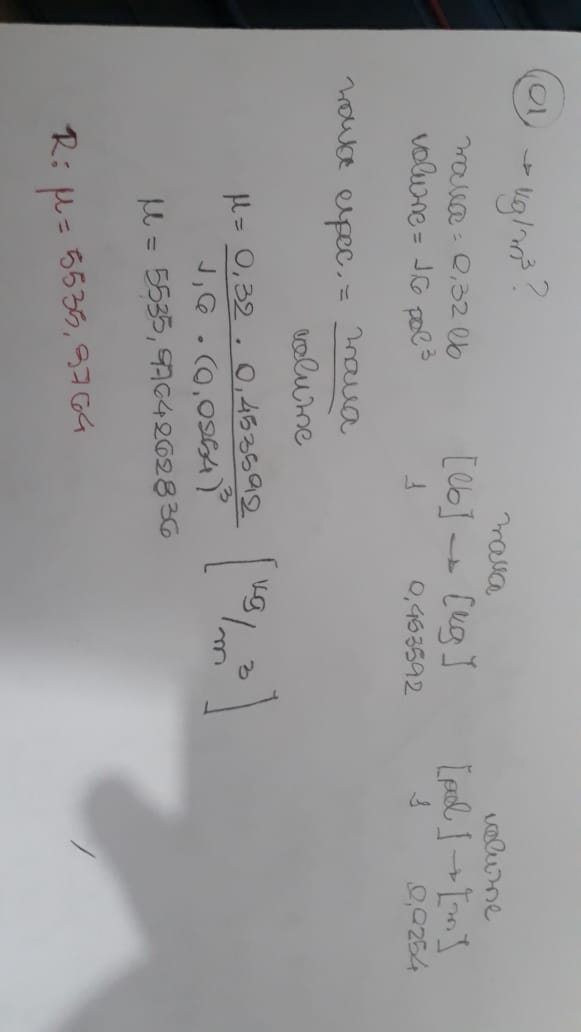 01 → kg/m³?
massa = 0,32 lb
volume = 1,6 pol³
massa
[lb] → [kg]
1 0,453592
volume
[pol] → [m]
1 0,0254
massa espec. = massa
volume
μ = 0,32 . 0,453592 [kg/m³]
1,6 . (0,0254)³
μ = 5535,9764262836
R: μ = 5535,9764